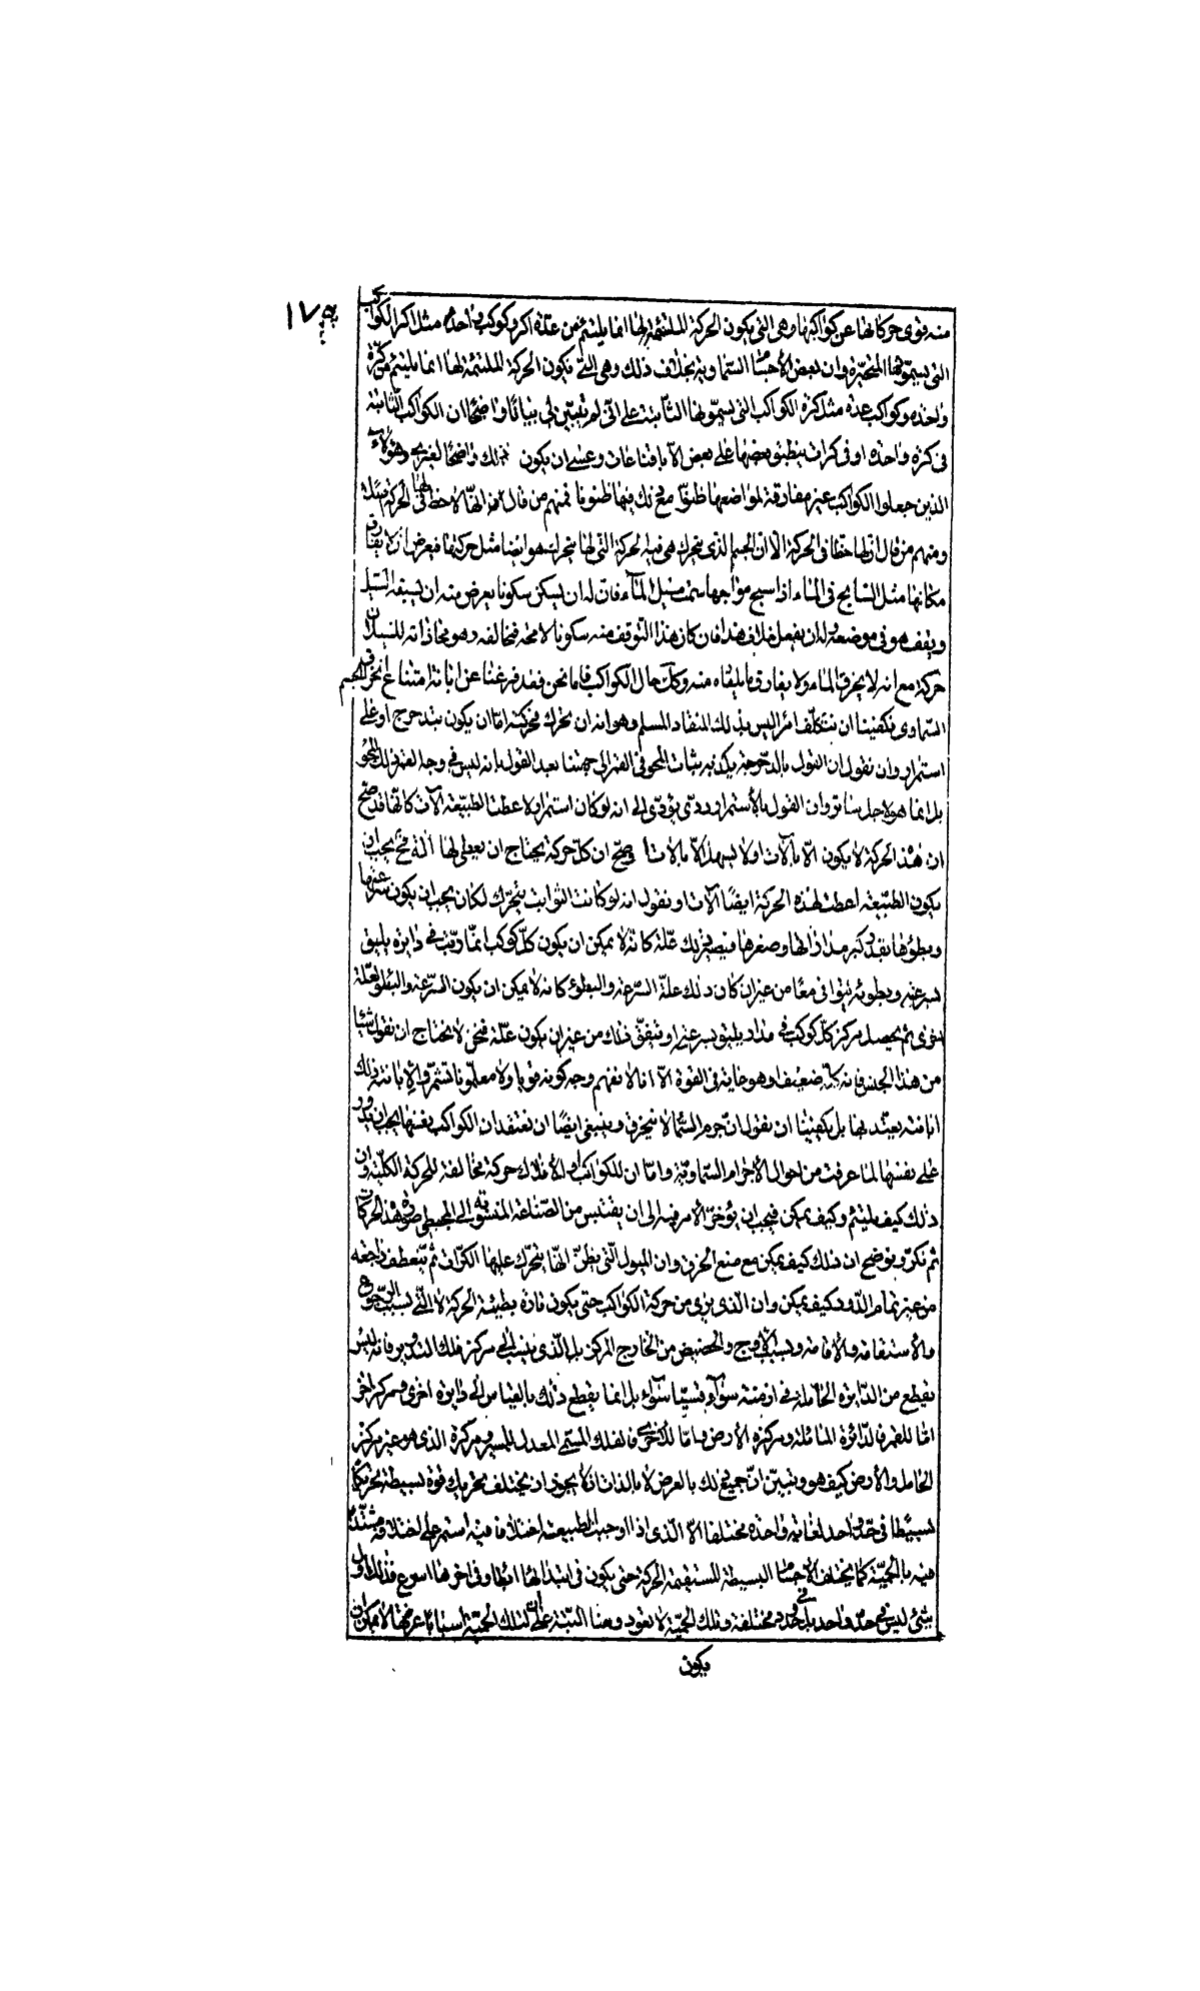 ١٧٥
منه قوى حركاتها عن كواكبها وهى التى يكون الحركة الملتئمة لها انما يلتئم من عدة اكر وكوكب واحد مثل اكر الكواكب
التى يسمونها المتحيّرة وان بعض الأجسام السّماوية بخلاف ذلك وهى التى يكون الحركة الملتئمة لها انما يلتئم من كرة
واحدة وكواكب عدة مثل كرة الكواكب التى يسمّونها الثّابتة على انّى لم يتبيّن لى بيانا واضحا ان الكواكب الثّابتة
فى كرة واحدة او فى كرات ينطبق بعضها على بعض الا باقناعات وعسى ان يكون ذلك واضحا لغيرى وهؤلاء
الذين جعلوا الكواكب غير مفارقة لمواضعها ظنّوا مع ذلك فيها ظنونا فمنهم من قال انها لا حظ لها فى الحركة
ومنهم من قال ان لها حظا فى الحركة الا ان الجسم الذى يتحرك هى فيه الحركة التى لها يتحرك هو ايضا مثل حركتها فيعرض ان لا يفارق
مكانها مثل السابح فى الماء اذا سبح مواجها سمت مسيل الماء فان له ان يسكن سكونا يعرض منه ان يسبقه السّيل
ويقف هو فى موضعه وله ان يفعل خلاف هذا فان كان هذا التوقف منه سكونا لا محة فمخالفه وهو محاذاته للسيلان
حركة مع انه لا يخرق الماء ولا يفارق ما يلقاه منه وكك حال الكواكب فاما نحن فقد فرغنا عن ابانة امتناع انخراق الجسم
السّماوى فكفينا ان نتكلّف امرا ليس بذلك المنقاد المسلم وهو انه ان تحرك فحركته اما ان يكون بتدحرج او على
استمرار وان نقول ان القول بالدحرجة يكذبه ثبات المحو فى القمر الى جهتنا بعد القول بانه ليس فى وجه القمر ذلك المحو
بل انما هو لاجل ساتر وان القول بالأستمرار ردى يؤدّى الى انه لو كان استمرار لاعطت الطبيعة الآت كانها قد صح
ان هذه الحركة لا يكون الا بالآت او لا يسهل الا بالآت او صح ان كلّ حركة يحتاج ان يعطى لها آلة فح يجب ان
يكون الطبيعة اعطت لهذه الحركة ايضا الآت او نقول انه لو كانت الثوابت يتحرك لكان يجب ان يكون سرعتها
وبطؤها بقدر كبر مداراتها وصغرها فيصير ذلك علّة كانه لا يمكن ان يكون كلّ كوكب انما رتب فى دايرة يليق
بسرعته وبطوئه يتوافى معا من غير ان كان ذلك علّة السّرعة والبطوء كانه لا يمكن ان يكون السّرعة والبطؤ لعلة
اخرى ثم يحصل مركز كلّ كوكب فى مدار يليق بسرعته او يتفق ذلك من غير ان يكون علّة فنحن لا نحتاج ان نقول شيئا
من هذا الجنس فانه كله ضعيف او هو غاية فى القوة الا انا لا نفهم وجه كونه قويا ولا معلّونا نشمّر والابانة ذلك
ابانة يعتد بها بل يكفينا ان نقول ان جرم السّماء لا ينخرق وينبغى ايضا ان نعتقد ان الكواكب نفسها يجب ان يدور
على نفسها لما عرفت من احوال الأجرام السّماويّة واما ان للكواكب او الأفلاك حركة مخالفة للحركة الكلّية وان
ذلك كيف يلتئم وكيف يمكن فيجب ان يؤخّر الأمر فيه الى ان يقتبس من الصّناعة المنسوبة الى المجسطى صورة هذه الحركات
ثم نكرّ ونوضح ان ذلك كيف يمكن مع منع الخرق وان الميول الّتى يظنّ انّها يتحرّك عليها الكرات ثم ينعطف راجعة
من غير تمام الدّور كيف يمكن وان الذى يرى من حركة الكواكب حتى يكون تارة بطيئة الحركة لا الّتى بسبب الرّجوع
والأستقامة والأقامة وبسبب الأوج والحضيض من الخارج المركز بل الّذى ينسب الى مركز فلك التدوير فانه ليس
يقطع من الدّايرة الحاملة فى ازمنة سواء قسيّا سواء بل انما يقطع ذلك بالقياس الى دايرة اخرى ومركز اخر
امّا للقمر فالدّائرة المائلة ومركزه الأرض وامّا للاخرى فالفلك المسمّى المعدل للمسير ومركزه الذى هو غير مركز
الحامل والأرض كيف هو ويتبيّن انّ جميع ذلك بالعرض لا بالذات اذ لا يجوز ان يختلف تحريك قوة بسيطة تحريكا
بسيطا فى حدّ واحد لغاية واحدة مختلفا الاّ الّذى اذا اوجبت الطبيعة اختلافا فيه استمر على اختلافه مشتدّا
فيه بالحميّة كما يختلف الأجسام البسيطة المستقيمة الحركة حتى يكون فى ابتدائها ابطأ وفى اخرها اسرع فذلك اول
شئ ليس فى حدّ واحد بل فى حدود مختلفة وتلك الحميّة لا تعود وهنا البتّة على ان لتلك الحميّة اسبابا عرفتها لا يمكن ان
يكون